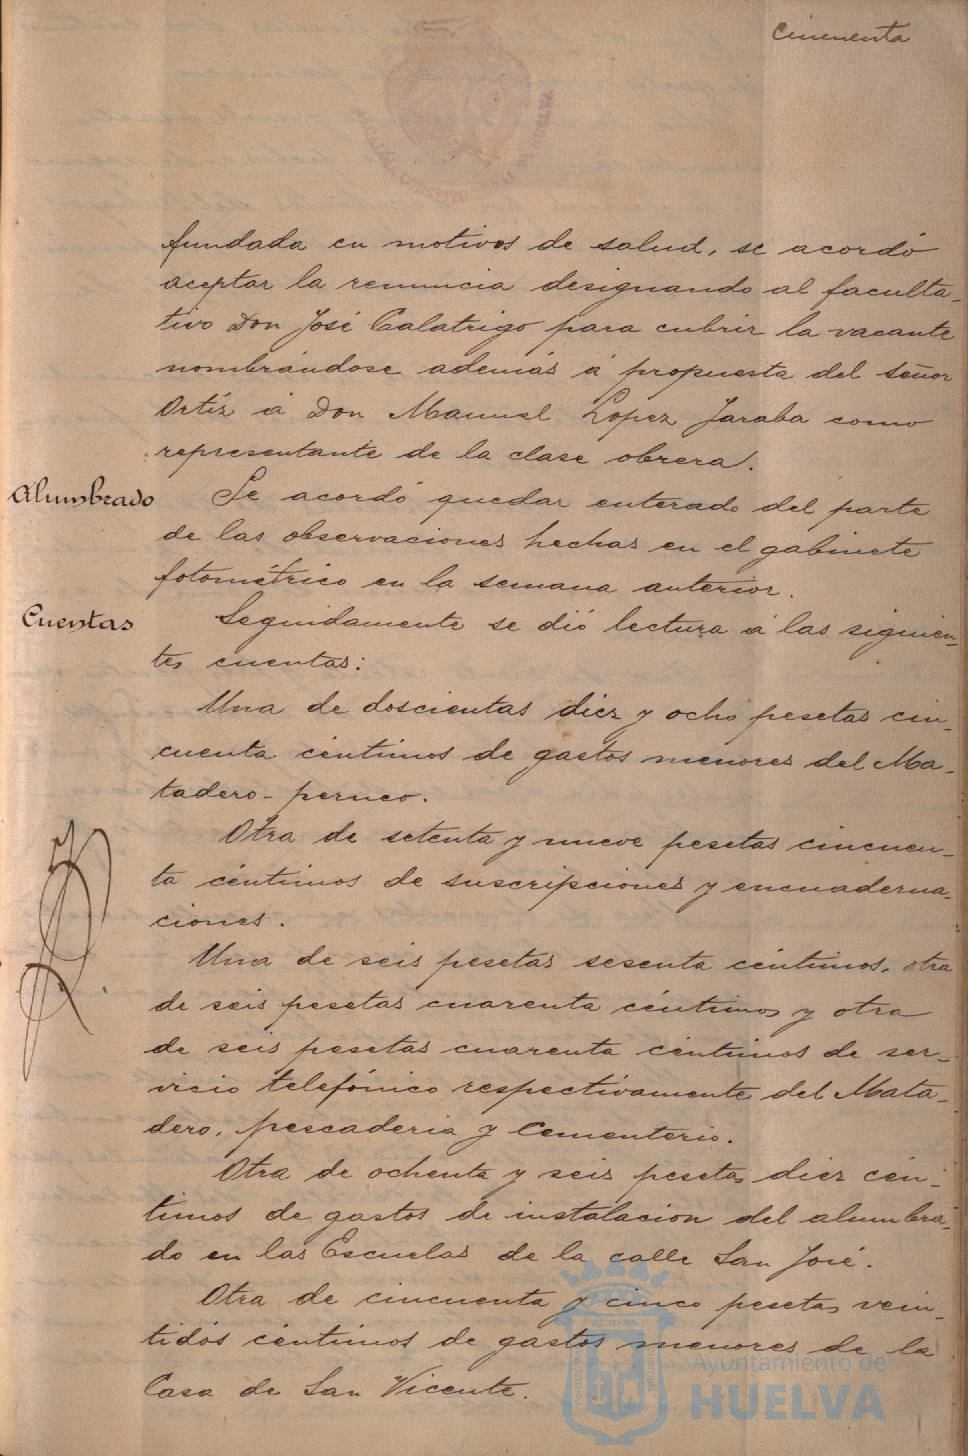 Cincuenta
fundada en motivos de salud, se acordó
aceptar la renuncia designando al faculta-
tivo Don José Calatrigo para cubrir la vacante
nombrándose además á propuesta del señor
Ortíz á Don Manuel Lopez Jaraba como
representante de la clase obrera.
Alumbrado
Se acordó quedar enterado del parte
de las observaciones hechas en el gabinete
fotométrico en la semana anterior.
Cuentas
Seguidamente se dió lectura á las siguien-
tes cuentas:
Una de doscientas diez y ocho pesetas cin-
cuenta céntimos de gastos menores del Ma-
tadero-
Otra de setenta y nueve pesetas cincuen-
ta céntimos de suscripciones y encuaderna-
ciones.
Una de seis pesetas sesenta céntimos, otra
de seis pesetas cuarenta céntimos y otra
de seis pesetas cuarenta céntimos de ser-
vicio telefónico respectivamente del Mata-
dero, pescaderia y Cementerio.
Otra de ochenta y seis pesetas diez cén-
timos de gastos de instalacion del alumbra-
do en las Escuelas de la calle San José.
Otra de cincuenta y cinco pesetas vein-
tidós céntimos de gastos menores de la
Casa de San Vicente.
Ayuntamiento de
HUELVA